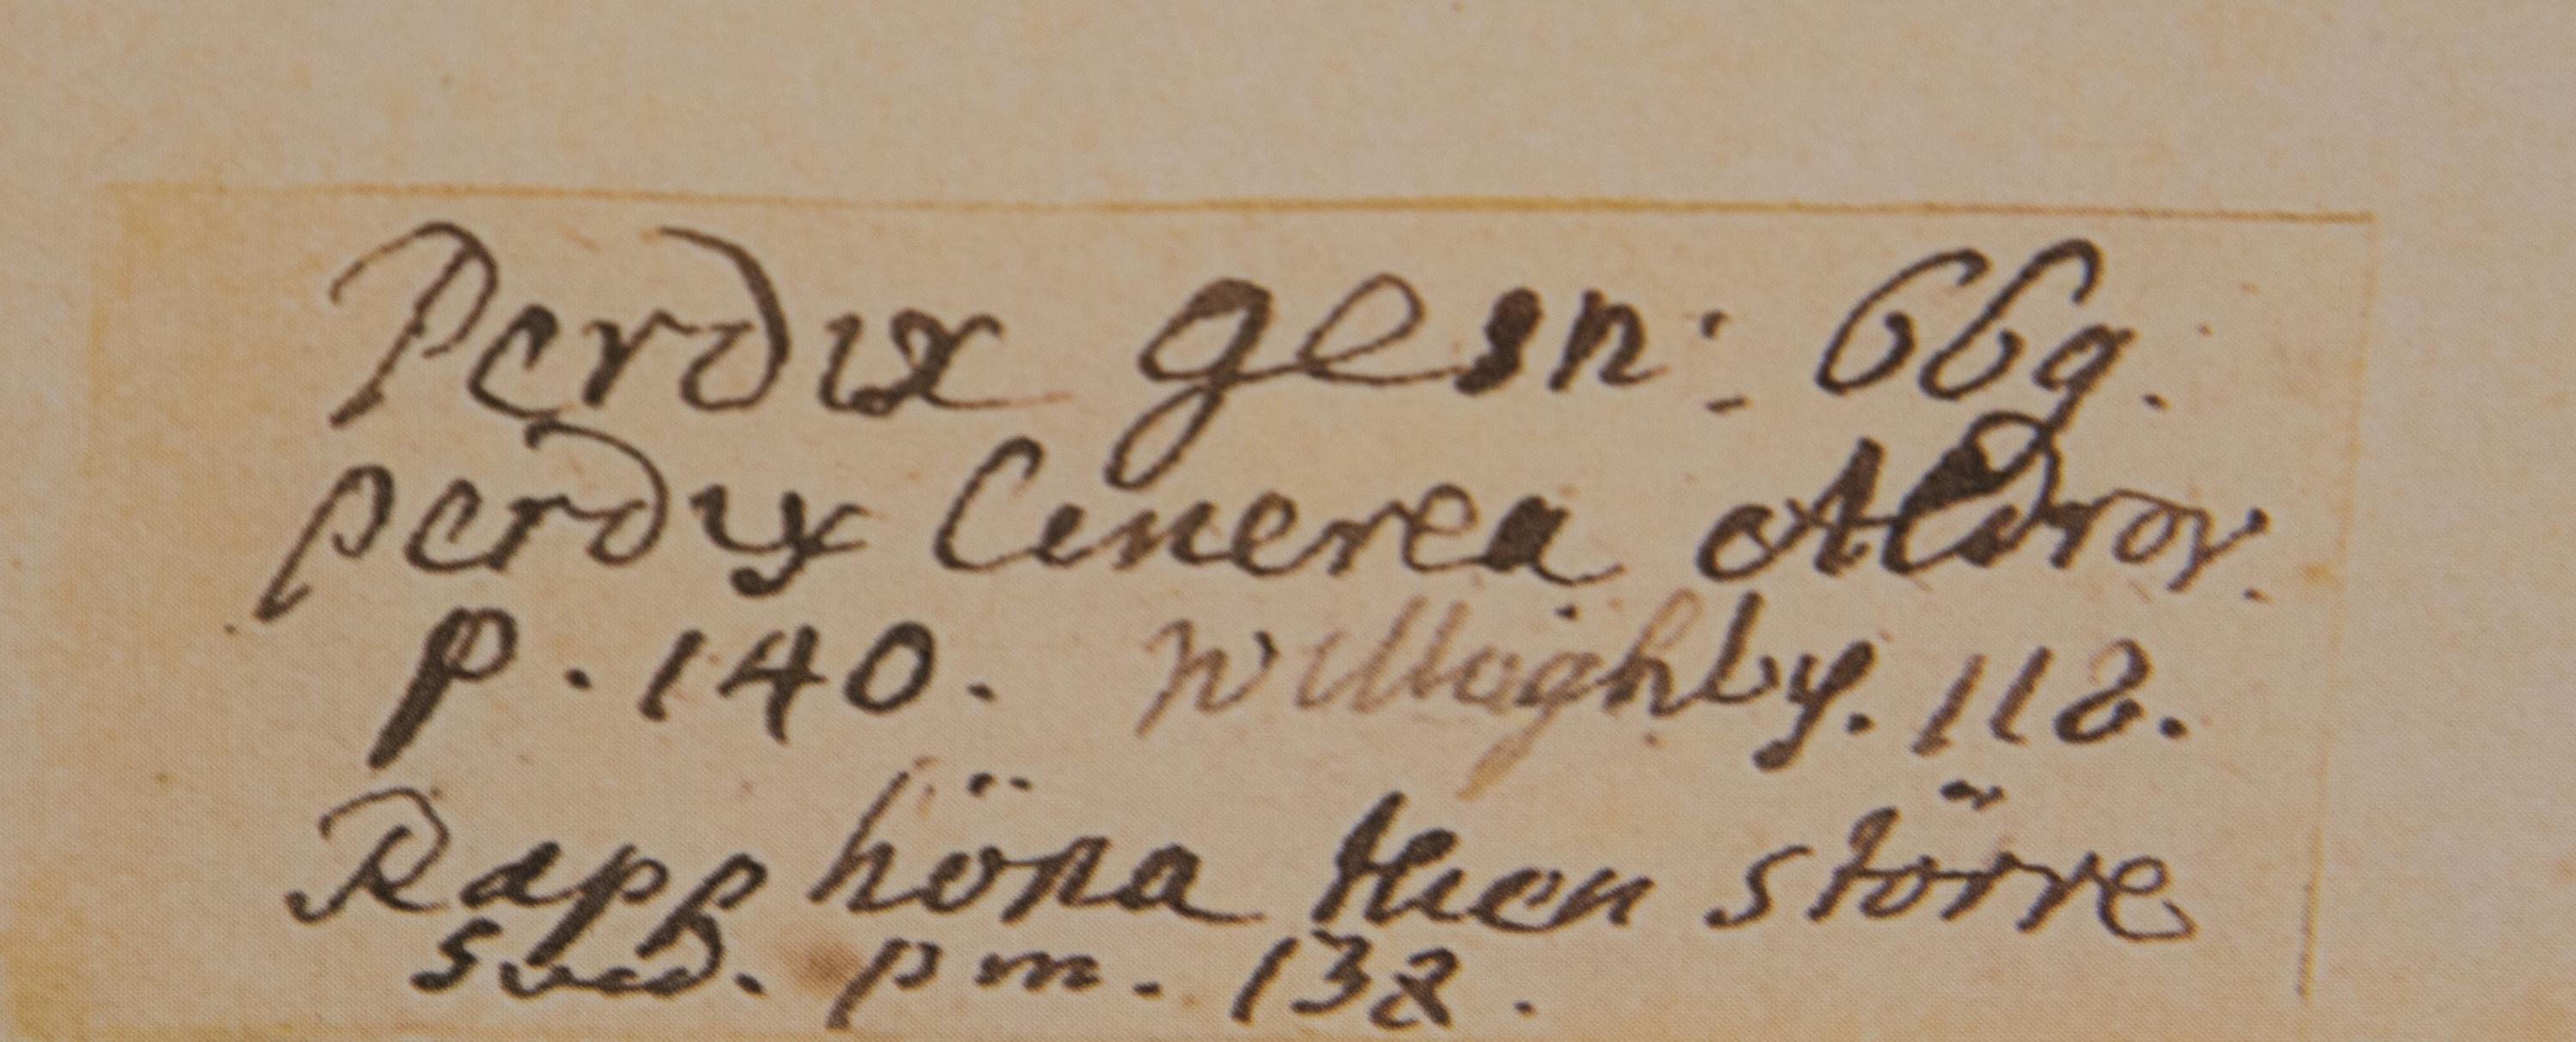 Perdix gesn: 669.
perdix Cinerea Aldrov.
p. 140. Willughby. 118.
Rapphöna then större
Sved. pm. 138.